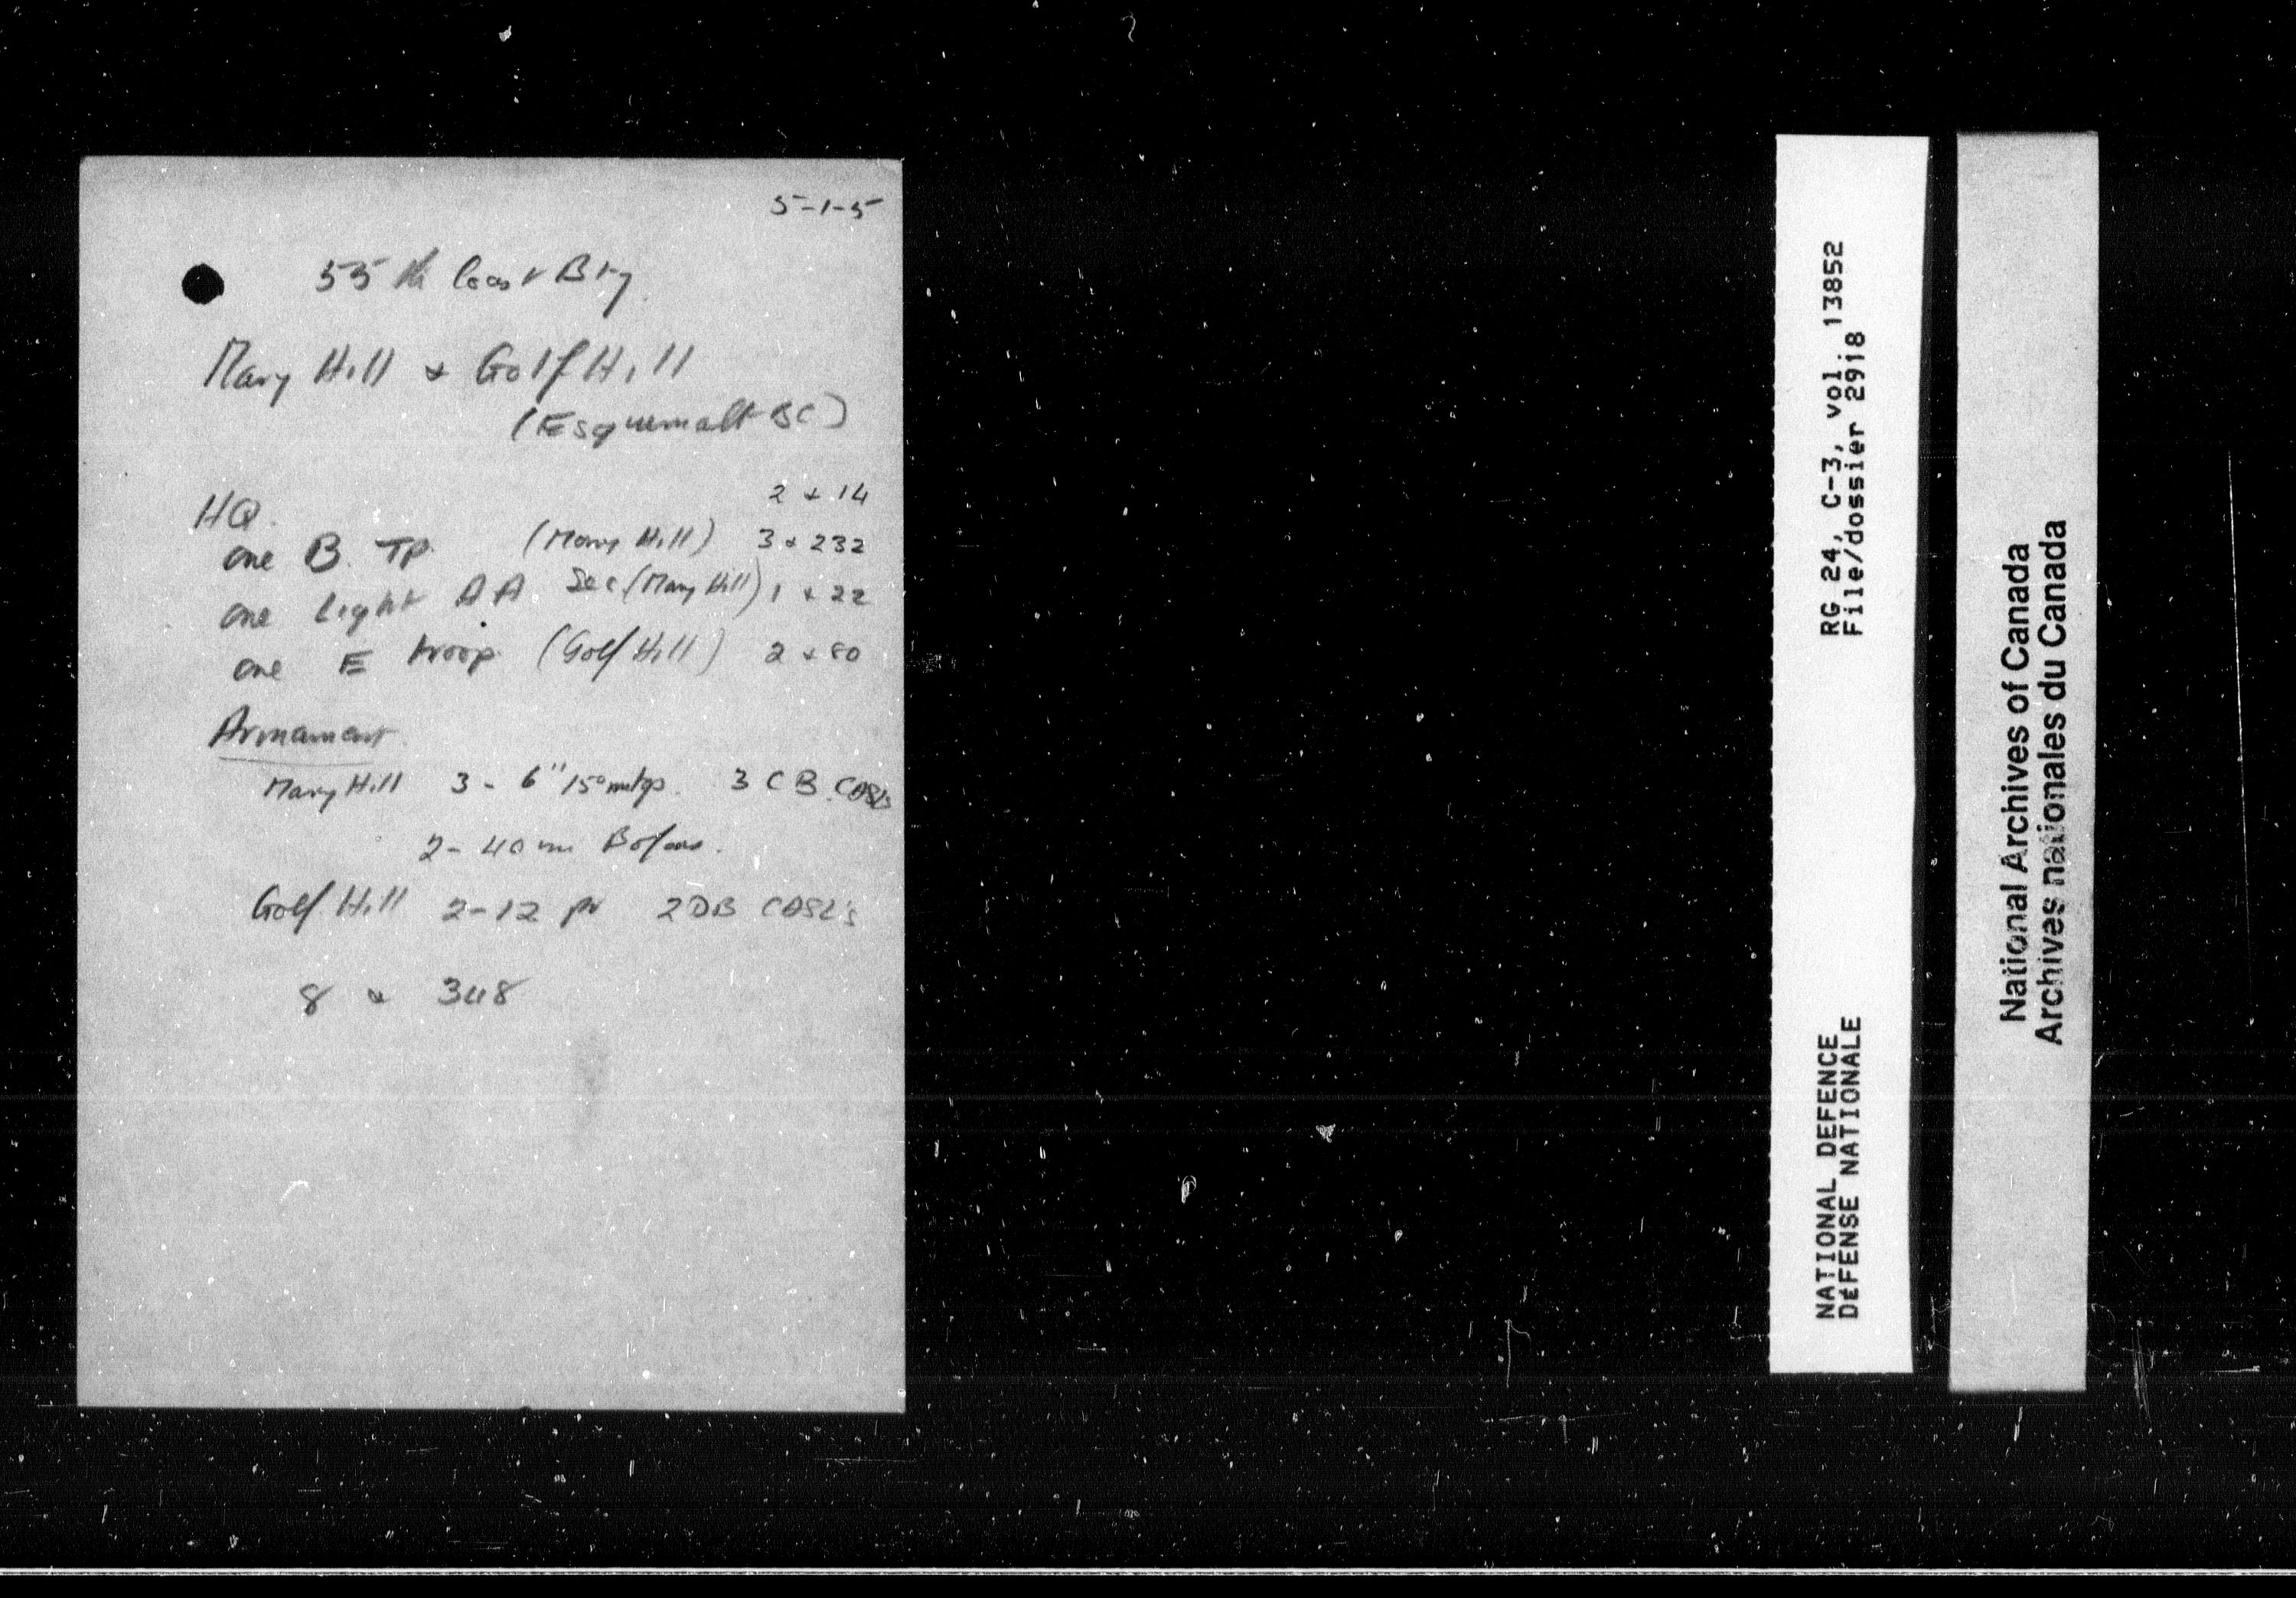 5-1-5
55th Coast Bty
Mary Hill & Golf Hill
(Esquimalt BC)
HQ. 2 & 14
one B. TP. (Mary Hill) 3 & 232
one Light AA Sec (Mary Hill) 1 & 22
one E troop (Golf Hill) 2 & 80
Armament.
Mary Hill 3 - 6" 15° mtgs. 3 CB. CASL's
2 - 40 mm Bofors.
Golf Hill 2-12 pr 2 DB CASL's
8 & 348
RG 24, C-3, vol. 13852
File/dossier 2918
NATIONAL DEFENCE
DÉFENSE NATIONALE
National Archives of Canada
Archives nationales du Canada